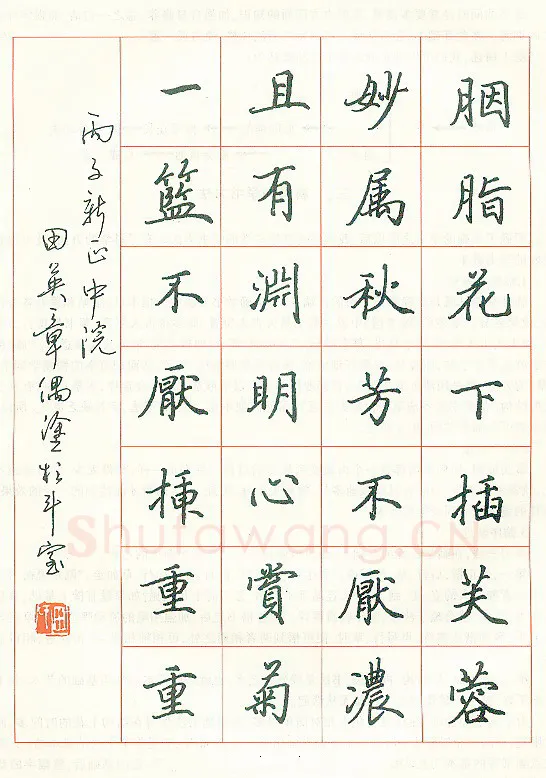 胭脂花下插芙蓉
妙属秋芳不厭濃
且有淵明心賞菊
一籃不厭挿重重
丙子新正中浣
田英章偶塗於斗室
Shufawang.CN